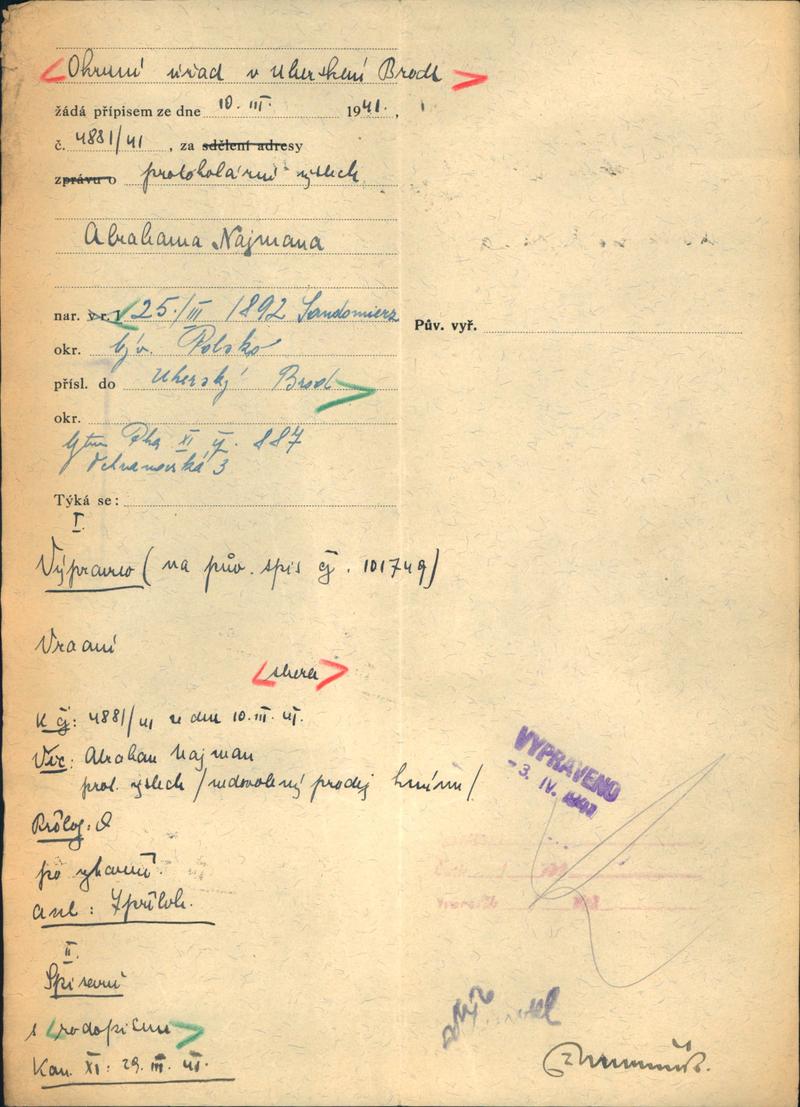 Okresní úřad v Uherském Brodě
žádá přípisem ze dne 10. III. 1941.,
č. 4881/41, za sdělení adresy
zprávu o protokolární výslech
Abrahama Najmana
nar. v r. 25./III 1892 Sandomierz
okr. býv. Polsko
přísl. do Uherský Brod
okr.
Pha XI čp. 887
3
Týká se:
I.
Výpravno (na pův. spis čj. 101749)
Vrací
K čj: 4881/41 ze dne 10. III. 41.
Věc: Abraham Najman
prot. výslech / nedovolený prodej
po vykonání.
Anl: 7 příloh.
II.
s rodopisem
Kan. XI: 29. III. 41.
Pův. vyř.
VYPRAVENO
-3. IV. 1941